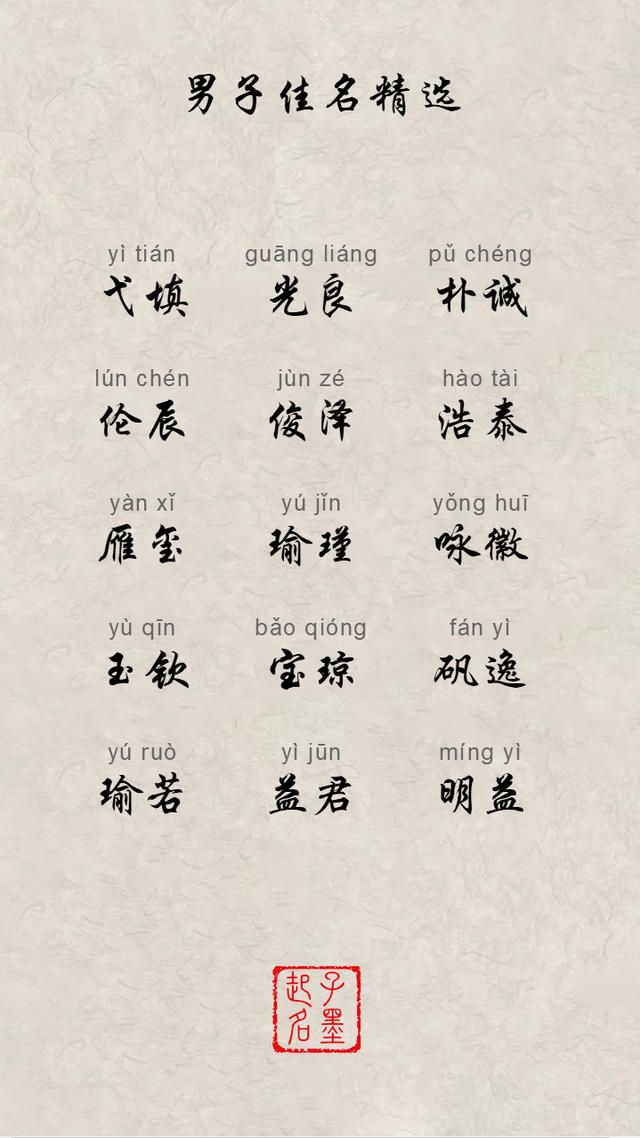 男子佳名精选
yì tián guāng liáng pǔ chéng
弋填 光良 朴诚
lún chén jùn zé hào tài
伦辰 俊泽 浩泰
yàn xǐ yú jǐn yǒng huī
雁玺 瑜瑾 咏徽
yù qīn bǎo qióng fán yì
玉钦 宝琼 矾逸
yú ruò yì jūn míng yì
瑜若 益君 明益
子墨
起名